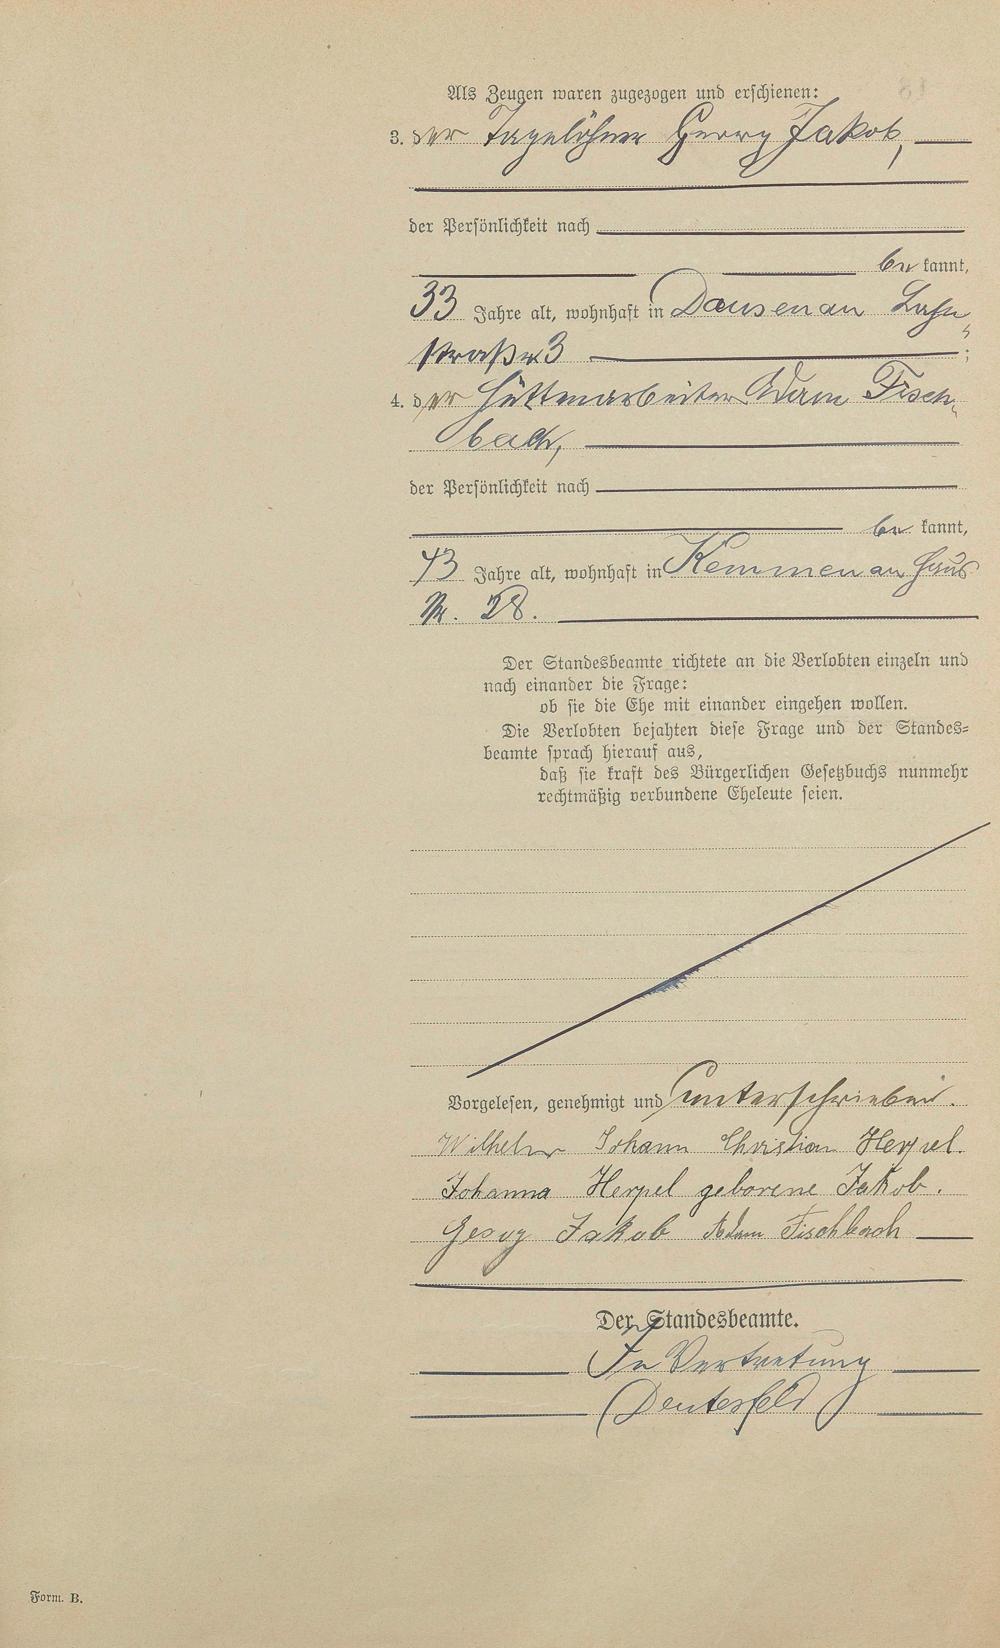 Als Zeugen waren zugezogen und erschienen:
3. der Tagelöhner Georg Jakob,
der Persönlichkeit nach
be kannt,
33 Jahre alt, wohnhaft in Dausenau Lahn
straße 3 ;
4. der Hüttenarbeiter Adam Fisch
bach,
der Persönlichkeit nach
be kannt,
43 Jahre alt, wohnhaft in Kemmenau Haus
Nr. 28.
Der Standesbeamte richtete an die Verlobten einzeln und
nach einander die Frage:
ob sie die Ehe mit einander eingehen wollen.
Die Verlobten bejahten diese Frage und der Standes=
beamte sprach hierauf aus,
daß sie kraft des Bürgerlichen Gesetzbuchs nunmehr
rechtmäßig verbundene Eheleute seien.
Vorgelesen, genehmigt und unterschrieben.
Wilhelm Johann Christian Herpel.
Johanna Herpel geborene Jakob.
Georg Jakob Adam Fischbach
Der Standesbeamte.
In Vertretung
Form. B.